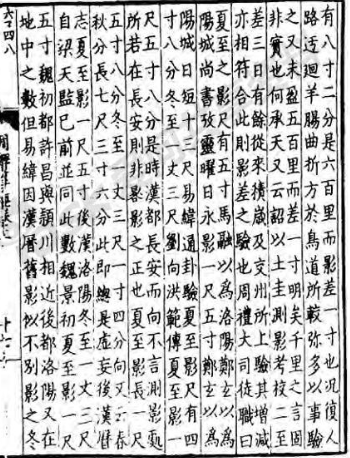 有八寸二分是六百里而影差一寸也況復人
路迂迴羊腸曲折方於鳥道所較彌多以事驗
之又未盈五百里而差一寸明矣千里之言固
非實也何承天又云詔以土圭測影考校二至
差三日有餘從來積歲及交州所上驗其增減
亦相符合此則影差之驗也周禮大司徒職曰
夏至之影尺有五寸馬融以為洛陽鄭玄以為
陽城尚書考靈曜日永影一尺五寸鄭玄以為
陽城日短十三尺易緯通卦驗夏至影尺有四
寸八分冬至一丈三尺劉向洪範傳夏至影一
尺五寸八分是時漢都長安而向不言測影處
所若在長安則非晷影之正也夏至影長一尺
五寸八分冬至一丈三尺一寸四分向又云春
秋分長七尺三寸六分此即總是虛妄後漢曆
志夏至影一尺五寸後漢洛陽冬至一丈三尺
自梁天監已前並同此數魏景初夏至影一尺
五寸魏初都許昌與潁川相近後都洛陽又在
地中之數但易緯因漢曆舊影似不別影之冬